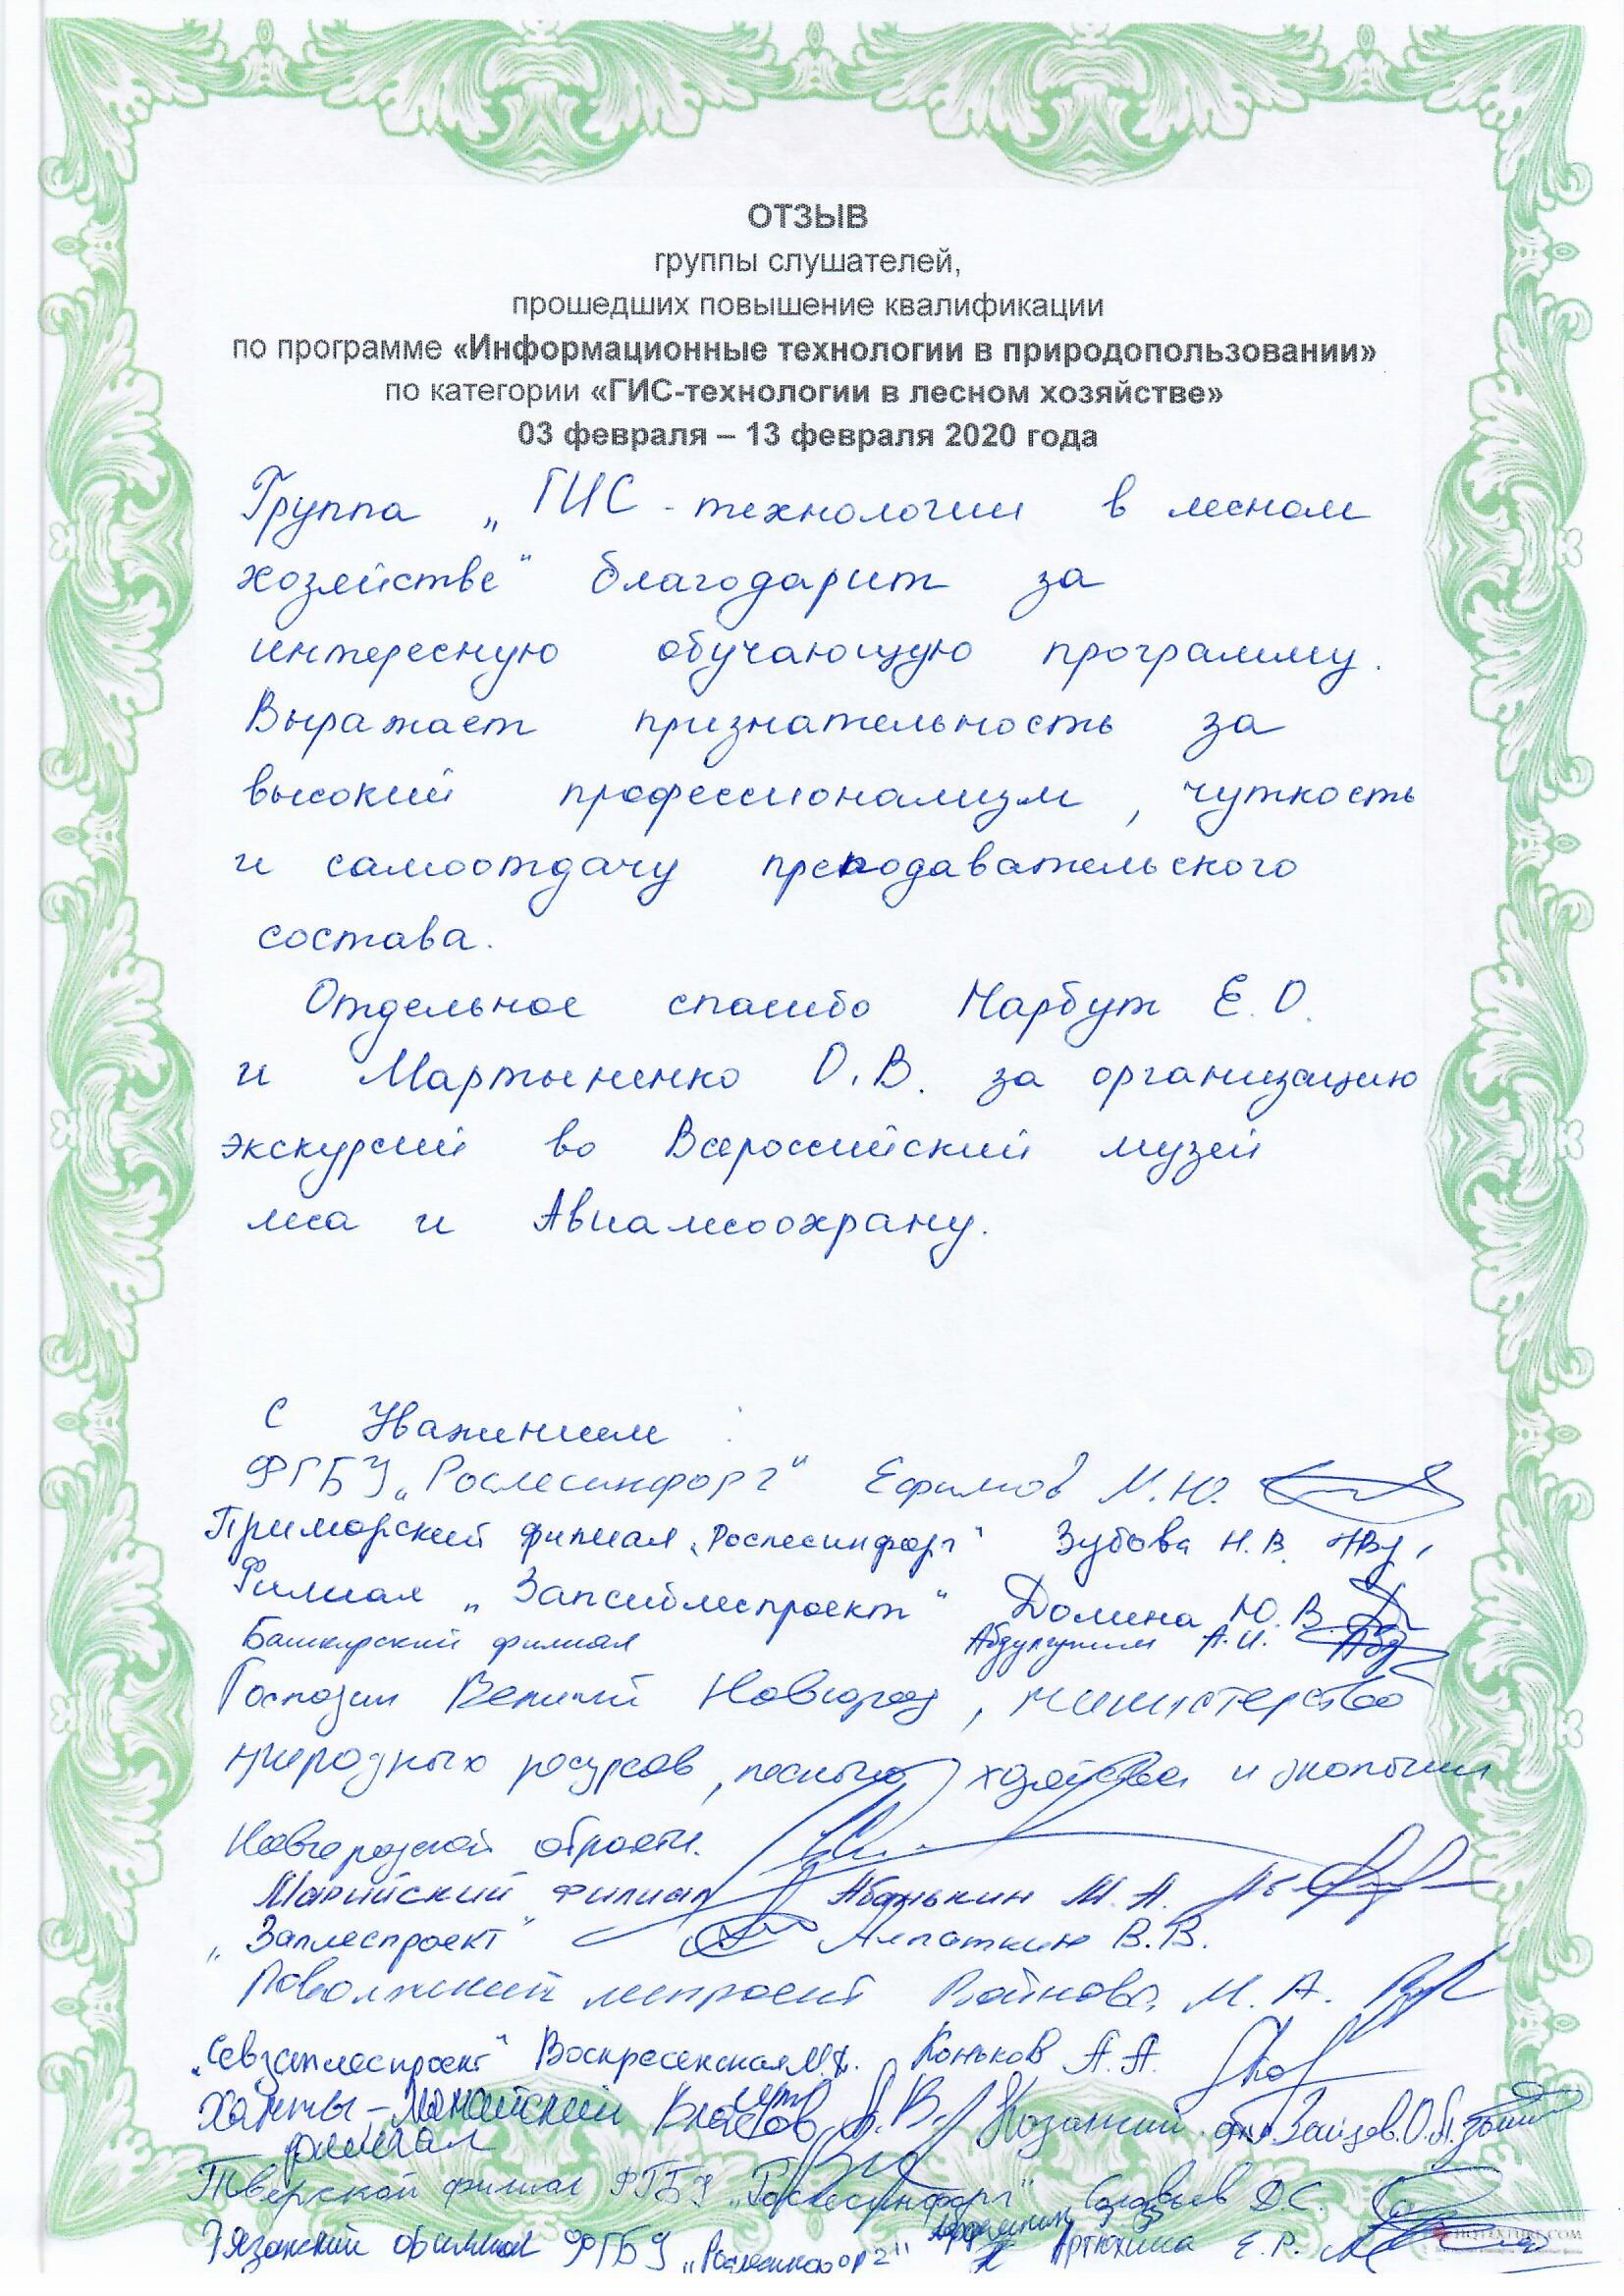 ОТЗЫВ
группы слушателей,
прошедших повышение квалификации
по программе «Информационные технологии в природопользовании»
по категории «ГИС-технологии в лесном хозяйстве»
03 февраля – 13 февраля 2020 года
Группа „ГИС-технологии в лесном
хозяйстве“ благодарит за
интересную обучающую программу.
Выражает признательность за
высокий профессионализм, чуткость
и самоотдачу преподавательского
состава.
Отдельное спасибо Нарбут Е.О.
и Мартыненко О.В. за организацию
экскурсий во Всероссийский музей
леса и Авиалесоохрану.
С Уважением:
ФГБУ „Рослесинфорг“ Ефимов М.Ю.
Приморский филиал „Рослесинфорг“ Зубова Н.В.
Филиал „Запсиблеспроект“ Домина Ю.В.
Башкирский филиал А.И.
Господин Великий Новгород, министерство
природных ресурсов, лесного хозяйства и экологии
Новгородской области.
Марийский филиал Абанькин М.А.
„Заплеспроект“ Алпаткин В.В.
Поволжский леспроект Войнова М.А.
„Севзаплеспроект“ Воскресенская М.А. Коньков А.А.
Ханты-Мансийский Власов А.В. Казанский фил. Зайцев О.А.
филиал
Тверской филиал ФГБУ „Рослесинфорг“ Соловьев Д.С.
Рязанский филиал ФГБУ „Рослесинфорг“ Артюхина Е.Р.